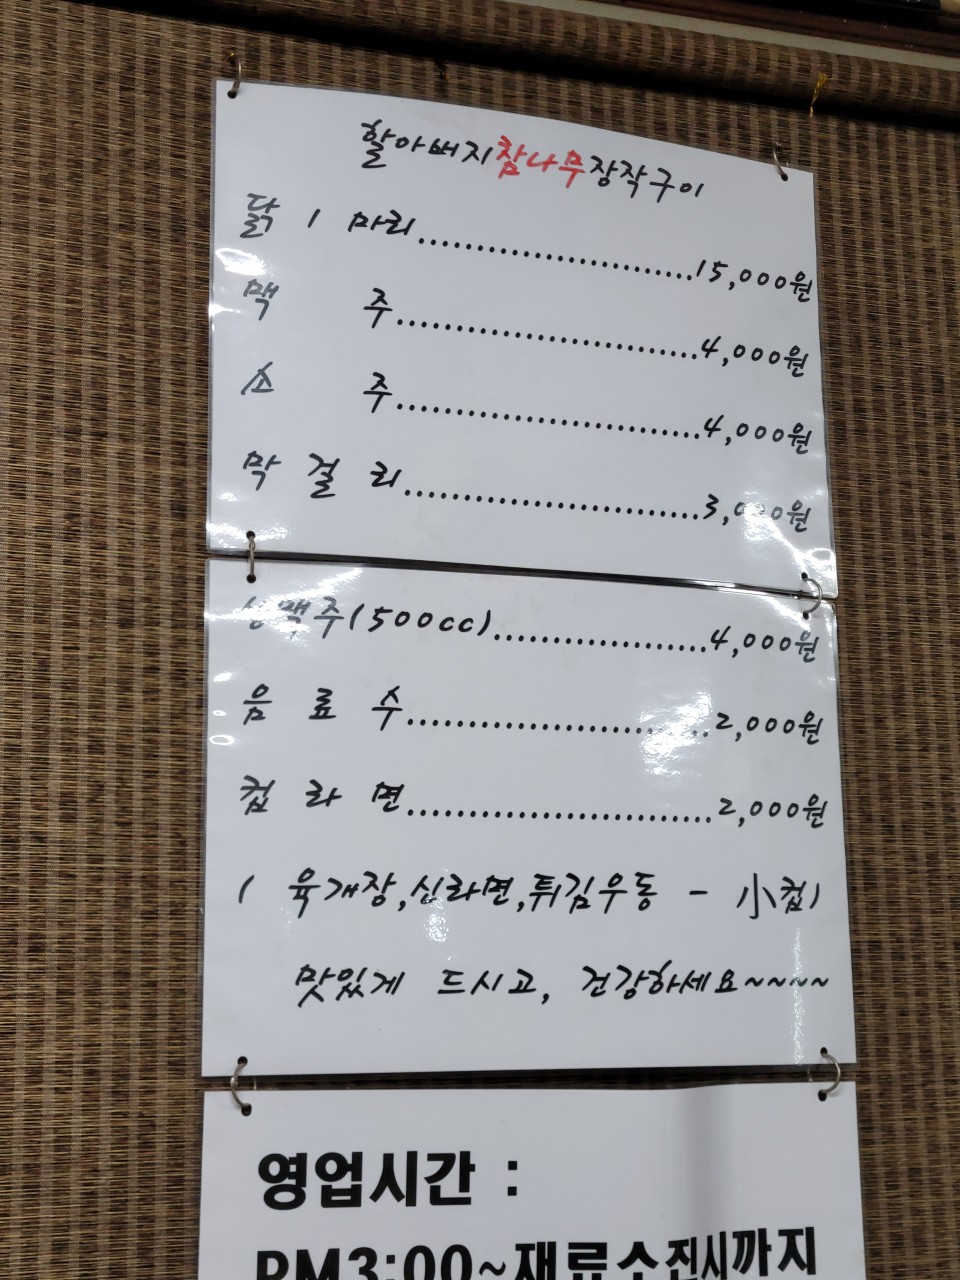 할아버지참나무장작구이
닭 1 마리........................15,000원
맥 주..........................4,000원
소 주..........................4,000원
막 걸 리..........................3,000원
생맥주(500cc)...................4,000원
음 료 수..........................2,000원
컵 라 면..........................2,000원
( 육개장,신라면,튀김우동 - 小컵)
맛있게 드시고, 건강하세요~~~~
영업시간 :
PM3:00~재료소진시까지